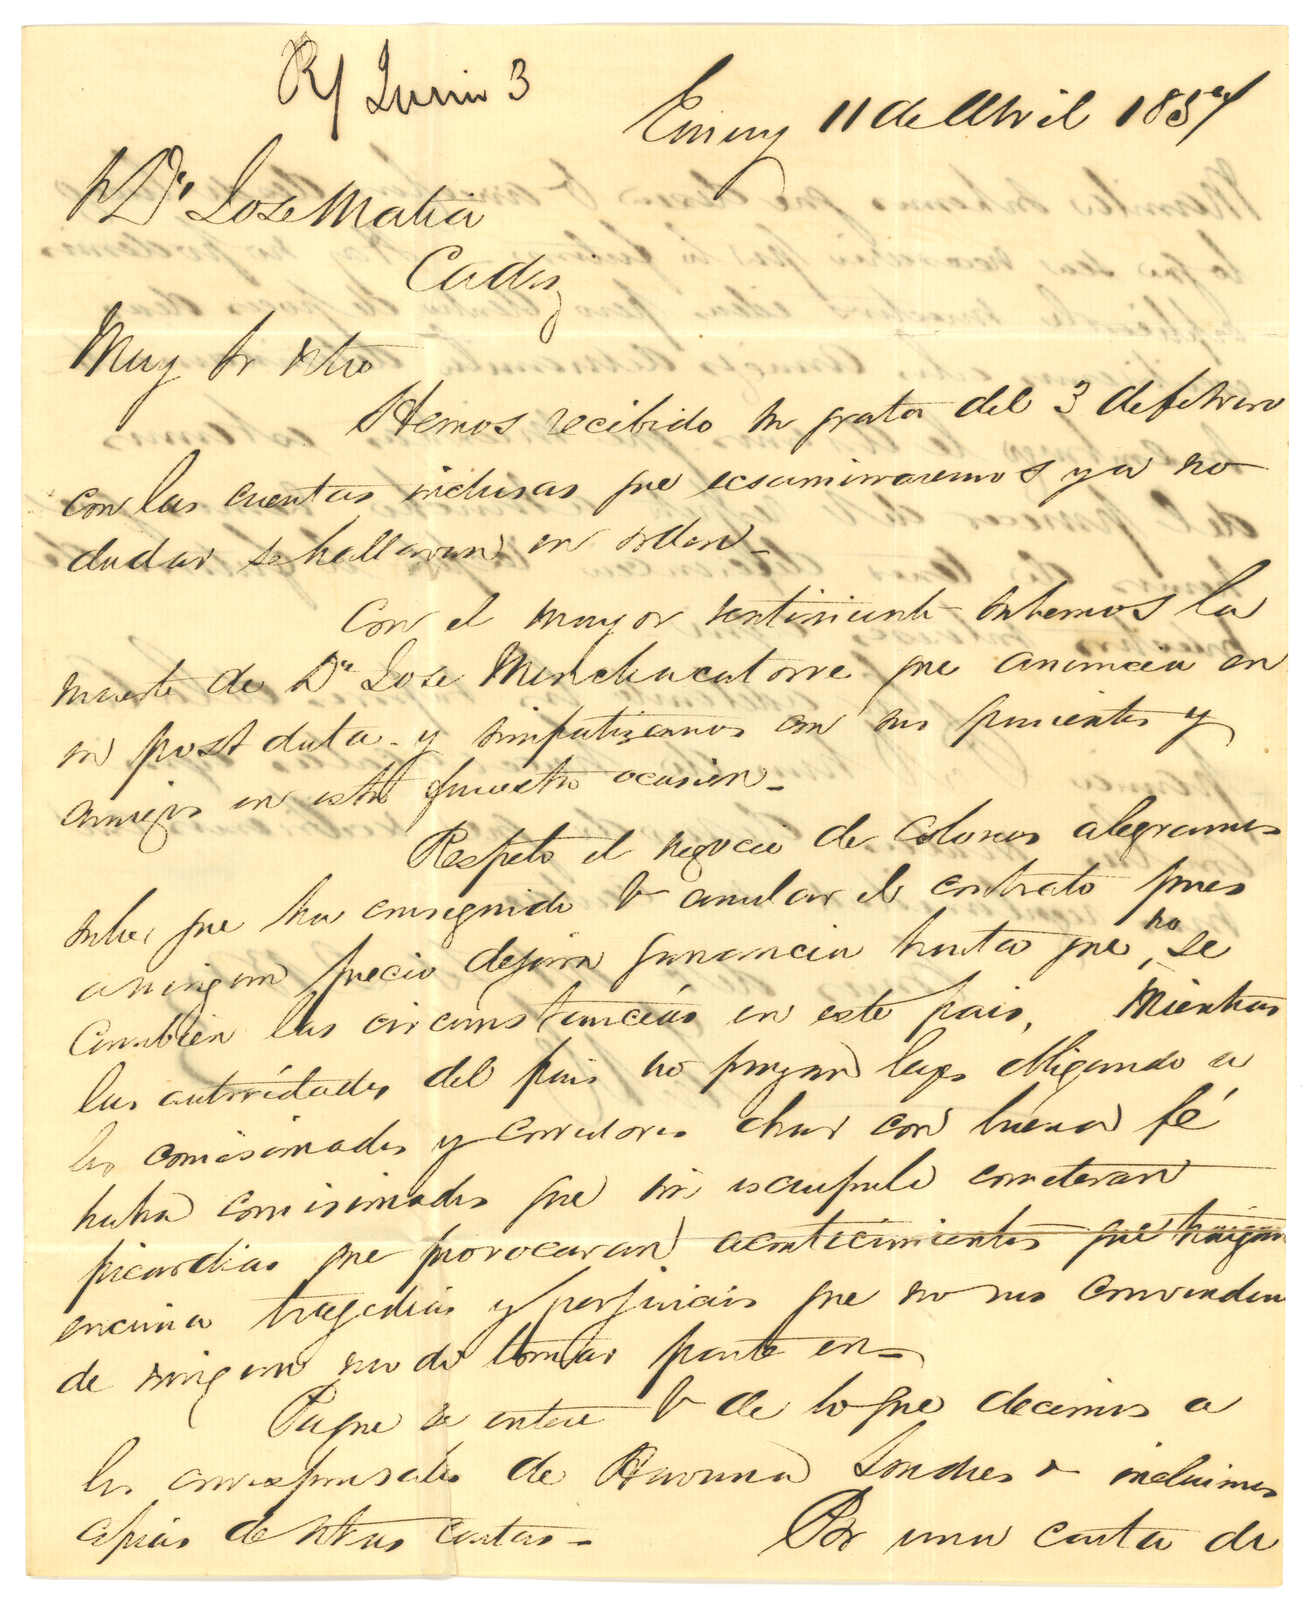 R/ Junio 3
Emuy 11 de Abril 1857
Sr Dn Jose Matia
Cadiz
Muy Sr ntro
Hemos recibido su grata del 3 de febrero
con las cuentas inclusas que ecsaminaremos y a no
dudar se hallaran en orden_
Con el mayor sentimiento sabemos la
muerte de Dn Jose Menchacatorre que anuncia en
su postdata y simpatizamos con sus parientes y
amigos en esta funesta ocasion_
Respeto el negocio de Colonos alegramos
saber que ha conseguido V anular el contrato pues
a ningun precio dejara ganancia hasta que no se
cambien las circumstancias en este pais, Mientras
las autoridades del pais no pongan leyes obligando a
los comisionados y corredores obrar con buena fé
habra comisionados que sin escrupulo cometeran
picardias que provocaran acontecimientos que traigan
encima tragedias y perjuicios que no nos convendra
de ningun modo tomar parte en_
Paque se entere V de lo que decimos a
los corresponsales de Havana Londres & incluimos
copias de ntras cartas_ Por una carta de